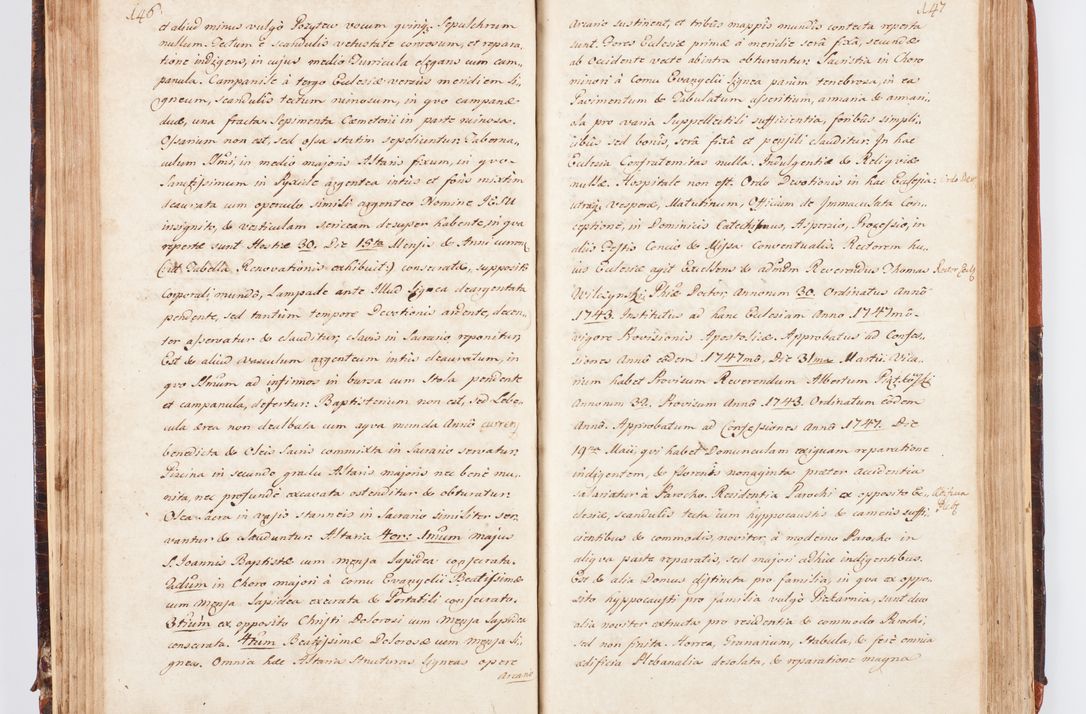 146
et aliud minus vulgò Pozytew vocum qvinq; Sepulchrum
nullum. Tectum è scandulis vetustate corrosum, et repara„
tione indigens, in cujus medio Turricula elegans cum cam„
panula. Campanile à tergo Ecclesiæ versùs meridiem Li„
gneum, scandulis tectum ruinosum, in qvo campanæ
duæ, una fracta. Sepimenta Cæmeterii in parte ruinosa.
Ossarium non est, sed ossa statim sepeliuntur. Taberna„
culum in medio majoris Altaris fixum, in qvo
Sanctissimum in Pyxide argentea intùs et foris mixtim
deaurata cum operculo simili argenteo Nomine IESU
insignito, & vesticulam sericeam desuper habente, in qva
repertæ sunt Hostiæ 30. Die 15ta Mensis & Anni curren:
(:ut Tabella Renovationis exhibuit:) consecratæ, supposito
corporali mundo, Lampade ante Illud Lignea deargentata
pendente, sed tantùm tempore Devotionis ardente, decen„
ter asservatur & clauditur, clavis in Sacrario reponitur.
Est & aliud vasculum argenteum intùs deauratum, in
qvo ad infirmos in bursa cum Stola pendente
et campanula, defertur. Baptisterium non est, sed Lebe„
cula ærea non dealbata cum aqva munda Annò curren:
benedicta & Oleis Sacris commixta in Sacrario servatur.
Piscina in secundo gradu Altaris majoris nec benè mu„
nita, nec profundè excavata ostenditur & obturatur.
Olea sacra in vasio stanneis in Sacrario similiter ser„
vantur & clauduntur. Altaria 4or: 1mum majus
S. Joannis Baptistæ cum mensa lapidea consecrata.
2dum in Choro majori à cornu Evangelii Beatissimæ
cum mensa lapidea execrata & Portatili consecrato,
3tium ex opposito Christi Dolorosi cum mensa lapidea
consecrata. 4tum Beatissimæ Dolorosæ cum mensa Li„
gnea. Omnia hæc Altaria structuras ligneas opere
Arcario
147
Arcario sustinent, et tribus mappis mundis contecta reperta
sunt. Fores Ecclesiæ primæ à meridie serâ fixâ, secundæ
ab Occidente vecte abintra obturantur. Sacristia in Choro
minori à Cornu Evangelii lignea parùm tenebrosa, in ea
Pavimentum & Tabulatum asseritium, armaria & armari„
ola pro varia Suppellectili sufficientia, foribus simpli„
cibus sed bonis, serâ fixâ et pensili clauditur. In hac
Ecclesia Confraternitas nulla. Indulgentiæ & Religviæ
nullæ. Hospitale non est. Ordo Devotionis in hac Ecclesia:
utraq; vesperæ, Matutinum, Officium de Immaculata Con„
ceptione, in Dominicis Catechismus, Aspersio, Processio, in
aliis Festis Concio & Missa Conventualis. Rectorem hu„
Rector Eccl:
ius Ecclesiæ agit Excellens & adm̃dm Reverendus Thomas
Wilczynski Phiæ Doctor, Annorum 30. Ordinatus Annô
1743. Institutus ad hanc Ecclesiam Anno 1747mo
vigore Provisionis Apostolicæ. Approbatus ad Confes„
siones Annô eôdem 1747mô, Die 31ma Martii. Vica„
rium habet Provisum Reverendum Albertum
Annorum 32. Provisum Annô 1743. Ordinatum eôdem
Annô. Approbatum ad Confessiones Annô 1747. Die
19na Maii, qvi habet Domunculam exiguam reparatione
indigentem, & florenis nonaginta præter accidentia
salariatur à Parocho. Residentia Parochi ex opposito Ec„
clesiæ, scandulis tecta cum hyppocaustis & cameris suffi„
cientibus & commodis, noviter, à moderno Parocho in
aliqva parte reparatis, sed majori adhuc indigentibus.
Est & alia Domus distincta pro familia, in qva ex oppo„
sito hyppocausti pro familia vulgò Piekarnia, sunt duo
alia noviter extructa pro residentia & commodo Parochi,
sed non finita. Horrea, Granarium, Stabula, & ferè omnia
ædificia Plebanalia desolata, & reparatione magna